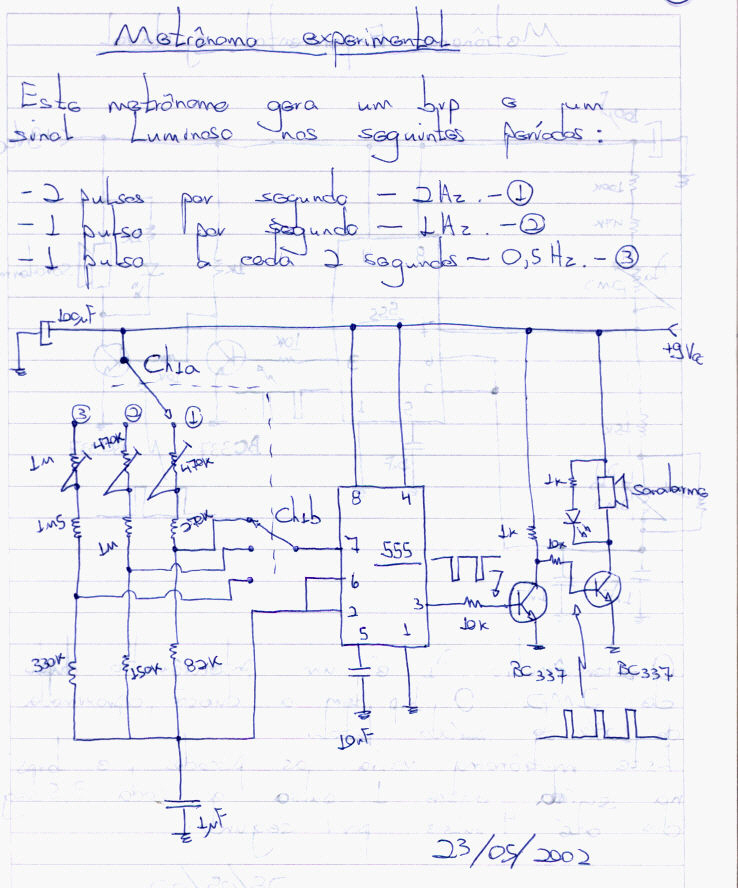 Metrônomo experimental
Este metrônomo gera um bip e um
sinal Luminoso nos seguintes períodos:
- 2 pulsos por segundo - 2Hz. - ①
- 1 pulso por segundo - 1Hz. - ②
- 1 pulso a cada 2 segundos - 0,5Hz. - ③
100µF
+9Vcc
Ch1a
③ ② ①
1M 470K 470K
1M5 1M 270K
Ch1b
8 4
7 555
6
2 3
5 1
10nF
10K
1K
10K
1K
Sonalarme
BC337 BC337
330K 150K 82K
1µF
23/05/2002